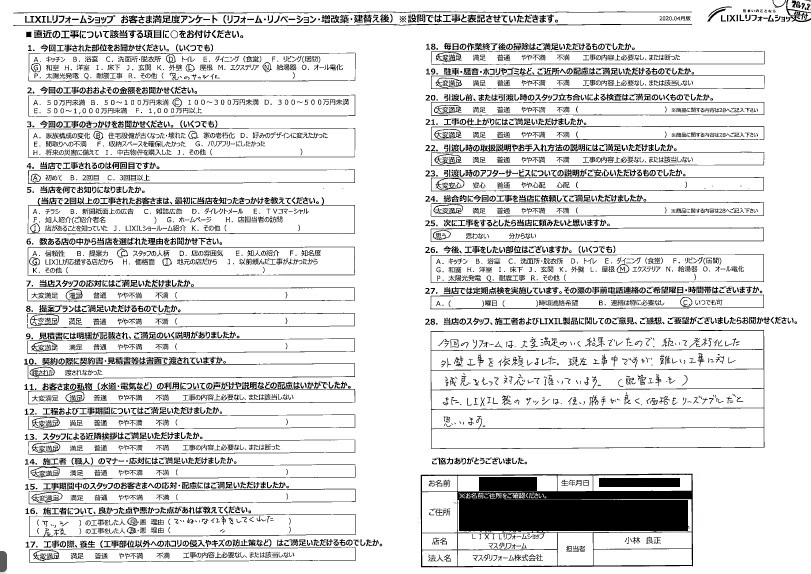 LIXILリフォームショップ お客さま満足度アンケート（リフォーム・リノベーション・増改築・建替え後）※設問では工事と表記させていただきます。
2020.04月版
LIXILリフォームショップ
■ 直近の工事について該当する項目に○をお付けください。
1．今回工事された部位をお聞かせください。（いくつでも）
A．キッチン B．浴室 C．洗面所・脱衣所 D．トイレ E．ダイニング（食堂） F．リビング（居間）
G．和室 H．洋室 I．床下 J．玄関 K．外壁 L．屋根 M．エクステリア N．給湯器 O．オール電化
P．太陽光発電 Q．耐震工事 R．その他（
2．今回の工事のおおよその金額をお聞かせください。
A．50万円未満 B．50～100万円未満 C．100～300万円未満 D．300～500万円未満
E．500～1,000万円未満 F．1,000万円以上
3．今回の工事のきっかけをお聞かせください。（いくつでも）
A．家族構成の変化 B．住宅設備が古くなった・壊れた C．家の老朽化 D．好みのデザインに変えたかった
E．間取りへの不満 F．収納スペースを確保したかった G．バリアフリーにしたかった
H．将来の災害に備えて I．中古物件を購入した J．その他（ ）
4．当店で工事されるのは何回目ですか。
A．初めて B．2回目 C．3回目以上
5．当店を何でお知りになりましたか。
（当店で2回以上の工事されたお客さまは、最初に当店を知ったきっかけを教えてください。）
A．チラシ B．新聞紙面上の広告 C．雑誌広告 D．ダイレクトメール E．TVコマーシャル
F．知人紹介（ご紹介者名 ） G．ホームページ H．店担当者の訪問
I．店があることを知っていた J．LIXILショールーム紹介 K．その他（ ）
6．数ある店の中から当店を選ばれた理由をお聞かせ下さい。
A．信頼性 B．提案力 C．スタッフの人柄 D．店の雰囲気 E．知人の紹介 F．知名度
G．LIXILが応援する店だから H．価格面 I．地元の店だから J．以前頼んだ工事がよかったから
K．その他（ ）
7．当店スタッフの応対にはご満足いただけましたか。
大変満足 満足 普通 やや不満 不満（ ）
8．提案プランはご満足いただけるものでしたか。
大変満足 満足 普通 やや不満 不満（ ）
9．見積書には明細が記載され、ご満足のいく説明がありましたか。
大変満足 満足 普通 やや不満 不満（ ）
10．契約の際に契約書・見積書等は書面で渡されていますか。
渡された 渡されなかった
11．お客さまの私物（水道・電気など）の利用についての声がけや説明などの配点はいかがでしたか。
大変満足 満足 普通 やや不満 不満 工事の内容上必要なし、または該当なし
12．工程および工事期間についてはご満足いただけましたか。
大変満足 満足 普通 やや不満 不満（ ）
13．スタッフによる近隣挨拶はご満足いただけましたか。
大変満足 満足 普通 やや不満 不満 工事の内容上必要なし、または断った
14．施工者（職人）のマナー・応対にはご満足いただけましたか。
大変満足 満足 普通 やや不満 不満（ ）
15．工事期間中のスタッフのお客さまへの応対・配慮にはご満足いただけましたか。
大変満足 満足 普通 やや不満 不満（ ）
16．施工者について、良かった点や悪かった点があれば教えてください。
（サッシ ）の工事をした人 良・悪 理由（ていねいな仕事をしてくれた ）
（屋根 ）の工事をした人 良・悪 理由（ 〃 ）
17．工事の際、養生（工事部位以外へのホコリの侵入やキズの防止策など）はご満足いただけるものでしたか。
大変満足 満足 普通 やや不満 不満 工事の内容上必要なし、または該当なし
18．毎日の作業終了後の掃除はご満足いただけるものでしたか。
大変満足 満足 普通 やや不満 不満 工事の内容上必要なし、または断った
19．駐車・騒音・ホコリやゴミなど、ご近所への配慮はご満足いただけましたか。
大変満足 満足 普通 やや不満 不満 工事の内容上必要なし、または該当なし
20．引渡し前、または引渡し時のスタッフ立ち合いによる検査はご満足のいくものでしたか。
大変満足 満足 普通 やや不満 不満（ ）※商品に関する内容は28へご記入下さい
21．工事の仕上がりにはご満足いただけましたか。
大変満足 満足 普通 やや不満 不満（ ）※商品に関する内容は28へご記入下さい
22．引渡し時の取扱説明やお手入れ方法の説明にはご満足いただけましたか。
大変満足 満足 普通 やや不満 不満 工事の内容上必要なし、または該当なし
23．引渡し時のアフターサービスについての説明がご安心いただけるものでしたか。
大変安心 安心 普通 やや心配 心配（ ）
24．総合的に今回の工事を当店に依頼してご満足いただけましたか。
大変満足 満足 普通 やや不満 不満（ ）※商品に関する内容は28へご記入下さい
25．次に工事をするとしたら当店に頼みたいと思いますか。
思う 思わない 分からない
26．今後、工事をしたい部位はございますか。（いくつでも）
A．キッチン B．浴室 C．洗面所・脱衣所 D．トイレ E．ダイニング（食堂） F．リビング（居間）
G．和室 H．洋室 I．床下 J．玄関 K．外壁 L．屋根 M．エクステリア N．給湯器 O．オール電化
P．太陽光発電 Q．耐震工事 R．その他（ ）
27．当店では定期点検を実施しています。その際の事前電話連絡のご希望曜日・時間帯はございますか。
A．（ ）曜日（ ）時頃連絡希望 B．連絡は特に必要なし C．いつでも可
28．当店のスタッフ、施工者およびLIXIL製品に関してのご意見、ご感想、ご要望がございましたらお聞かせください。
今回のリフォームは、大変満足のいく結果でしたので、続いて老朽化した
外壁工事を依頼しました。現在工事中ですが、難しい工事に対し
誠意をもって対応して頂いています。（配管工事も）
また、LIXIL製のサッシは、使い勝手が良く、価格もリーズナブルだと
思います。
ご協力ありがとうございました。
お名前 生年月日
※お名前ご住所をご確認ください。
ご住所
店名 LIXILリフォームショップ マスダリフォーム 担当者 小林 良正
法人名 マスダリフォーム株式会社